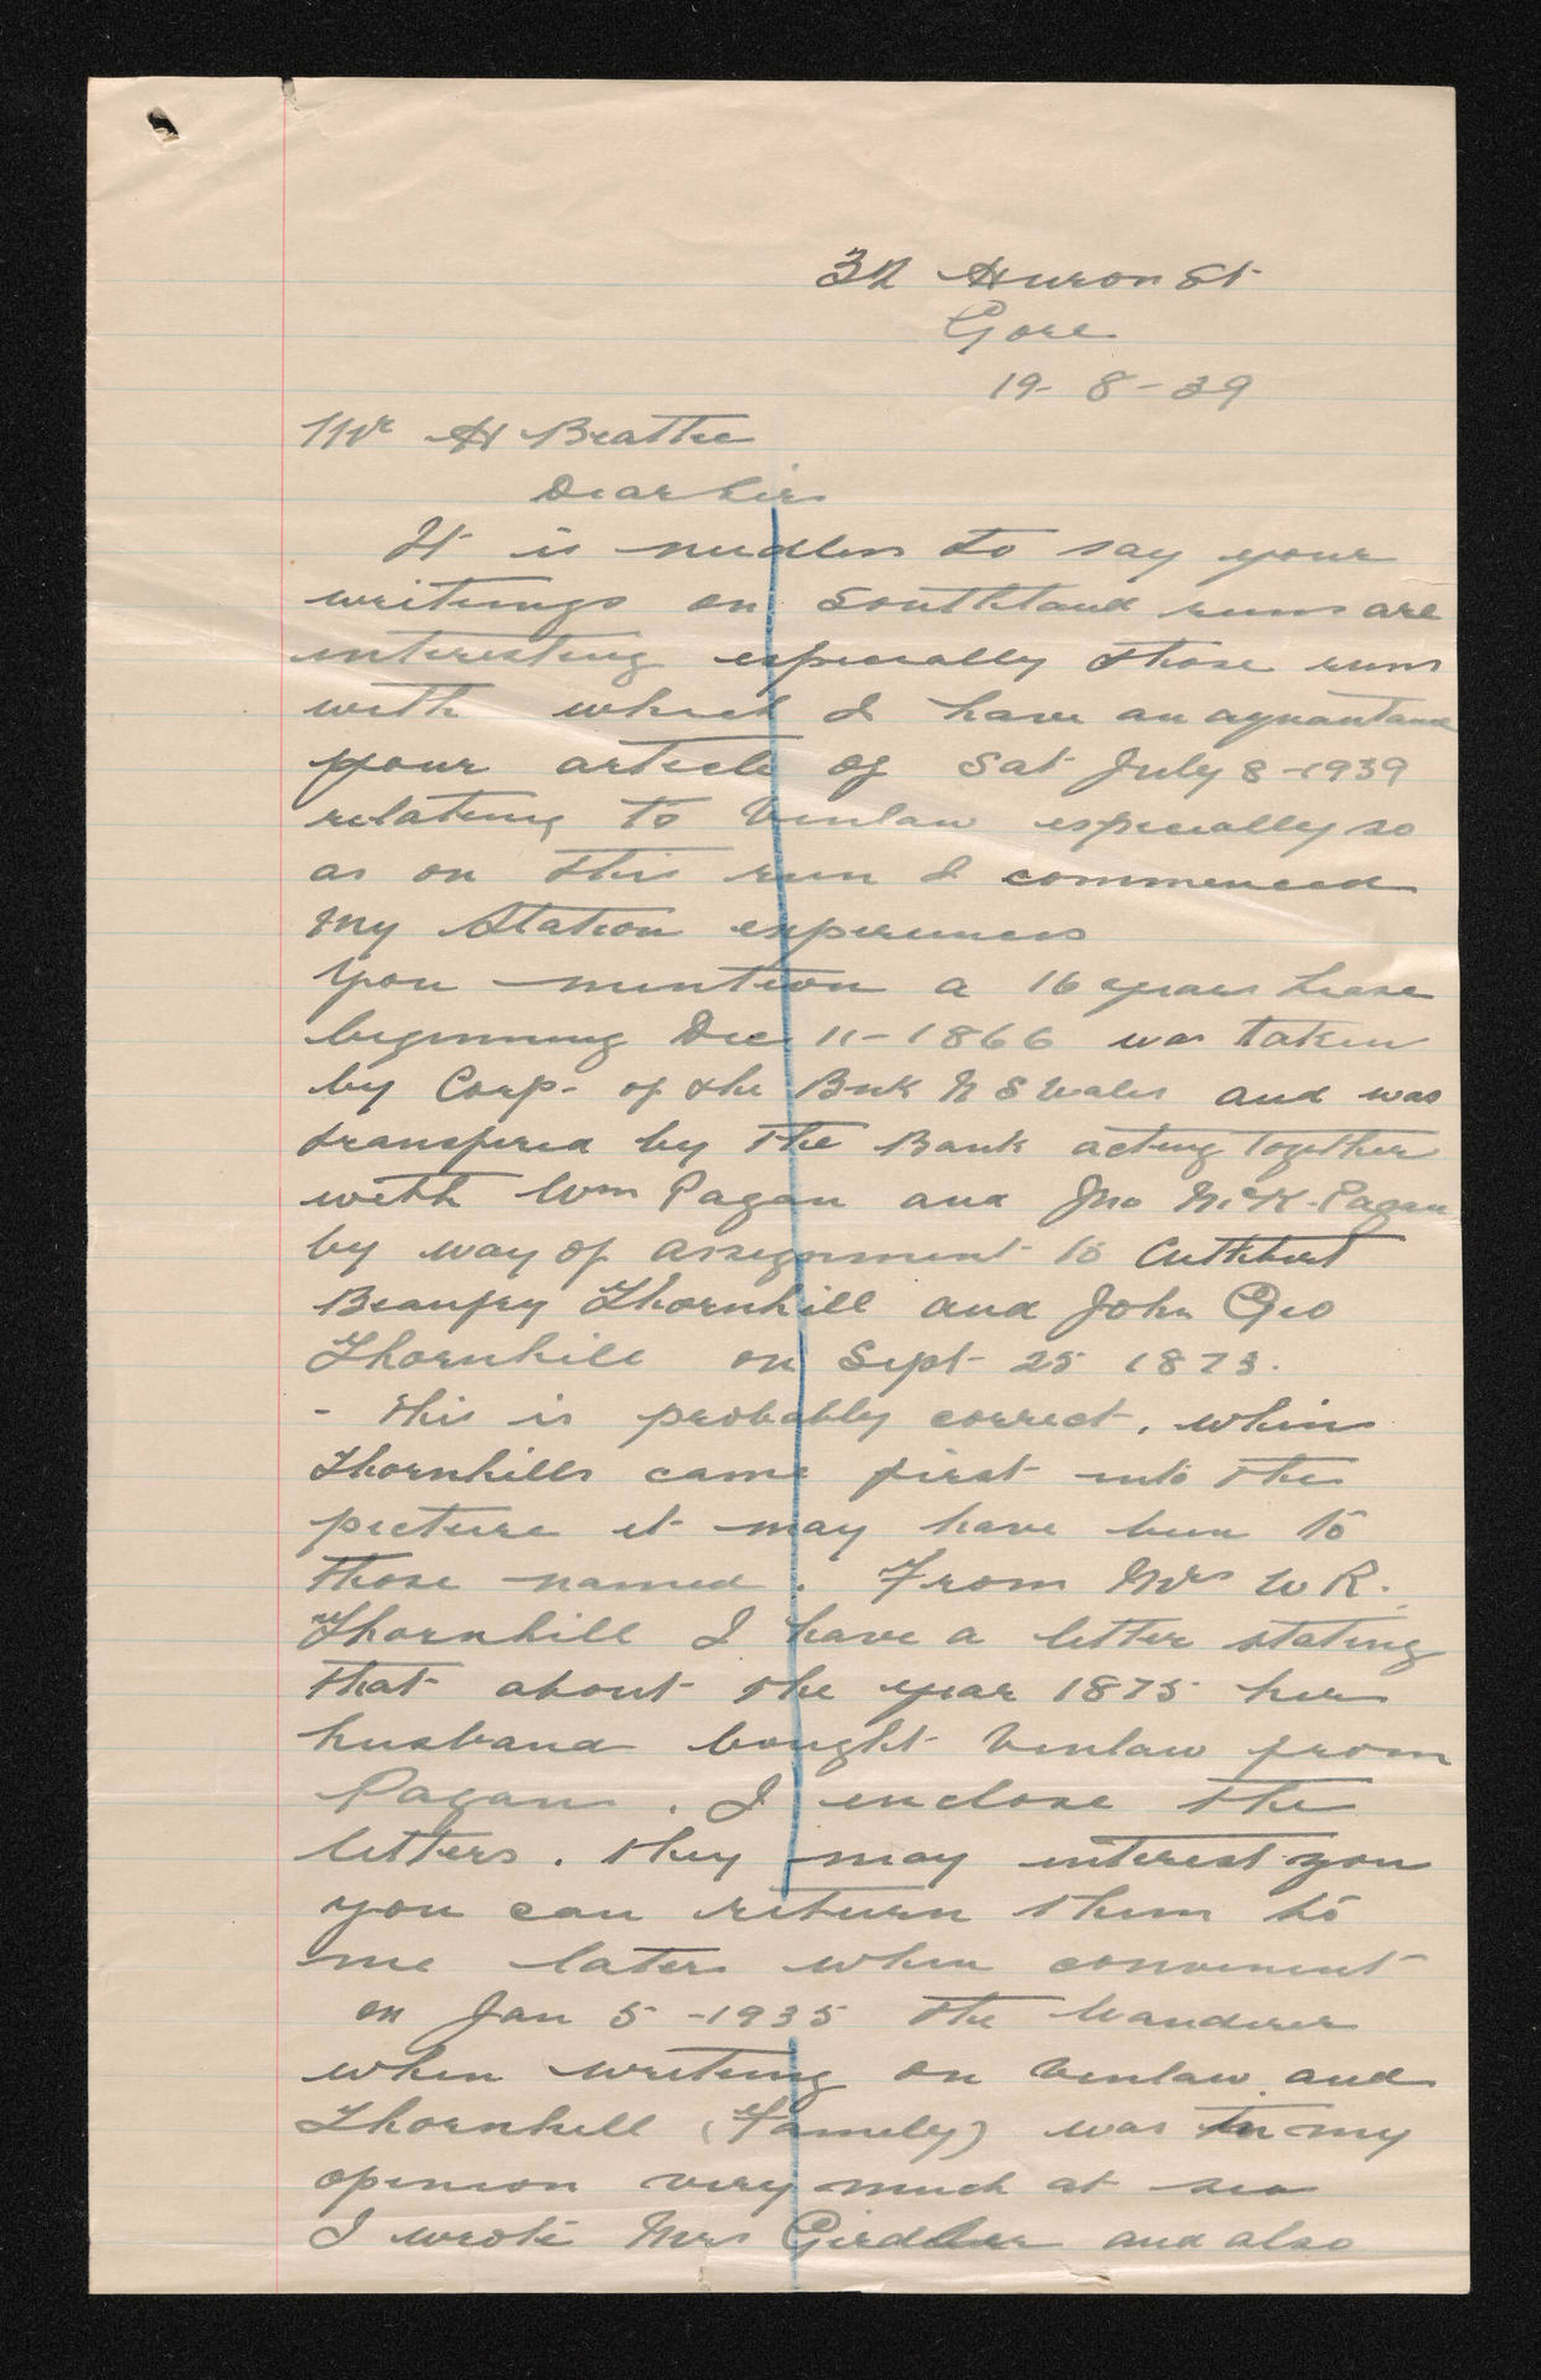 32 Huron St
Gore
19-8-39
Mr H Beattie
Dear Sir
It is needless to say your
writings on Southland runs are
interesting especially those runs
with which I have an aquantance
your article of Sat July 8-1939
relating to Benlaw especially so
as on this run I commenced
my Station experiences
You mention a 16 years lease
beginning Dec 11-1866 was taken
by Corp- of the Bnk N S Wales and was
transfered by the Bank acting together
with Wm Pagan and Jno McK-Pagan
by way of assignment to Cuthbert
Beaufoy Thornhill and John Geo
Thornhill on Sept 25 1873.
- this is probably correct, when
Thornhills came first into the
picture it may have been to
those named. From Mrs W R.
Thornhill I have a letter stating
that about the year 1875 her
husband bought Benlaw from
Pagans. I enclose the
letters. they may interest you
you can return them to
me later when convenient
on Jan 5-1935 the Wanderer
when writing on Benlaw and
Thornhill (Family) was in my
opinion very much at sea
I wrote Mrs and also